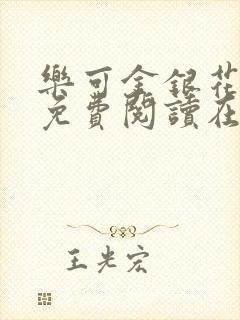 樂可金銀花
免費閱讀在
王光宏